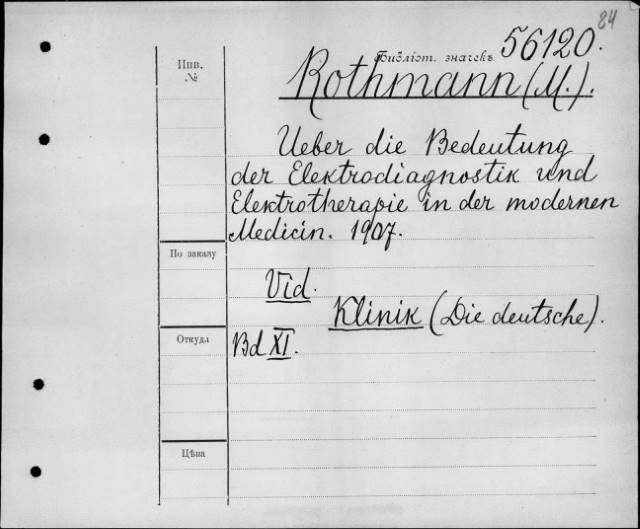 84
56120.
Библіот. значекъ
Инв.
№
Rothmann (M.).
Ueber die Bedeutung
der Elektrodiagnostik und
Elektrotherapie in der modernen
Medicin. 1907.
По заказу
Vid.
Klinik (Die deutsche).
Откуда
Bd XI.
Цѣна